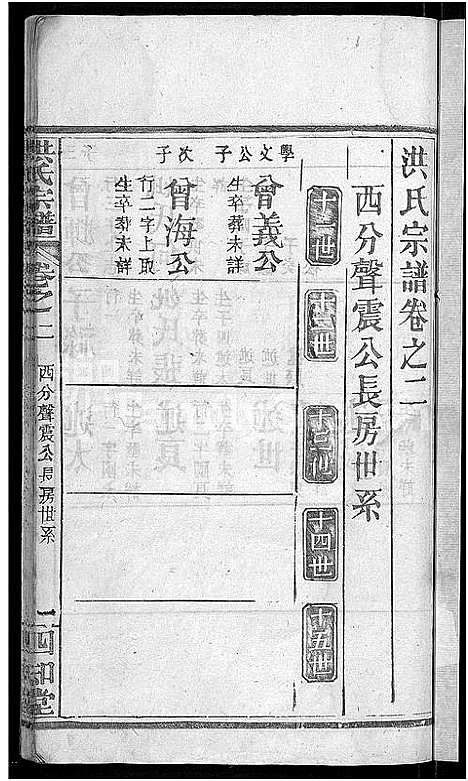 洪氏宗譜卷之二
西分聲震公長房世系
十一世
十二世
十三世
十四世
十五世
學文公子
曾義公
生卒葬未詳
次子
曾海公
行二字上取
生卒葬未詳
洪氏宗譜
卷之二
西分聲震公長房世系
一
四知堂